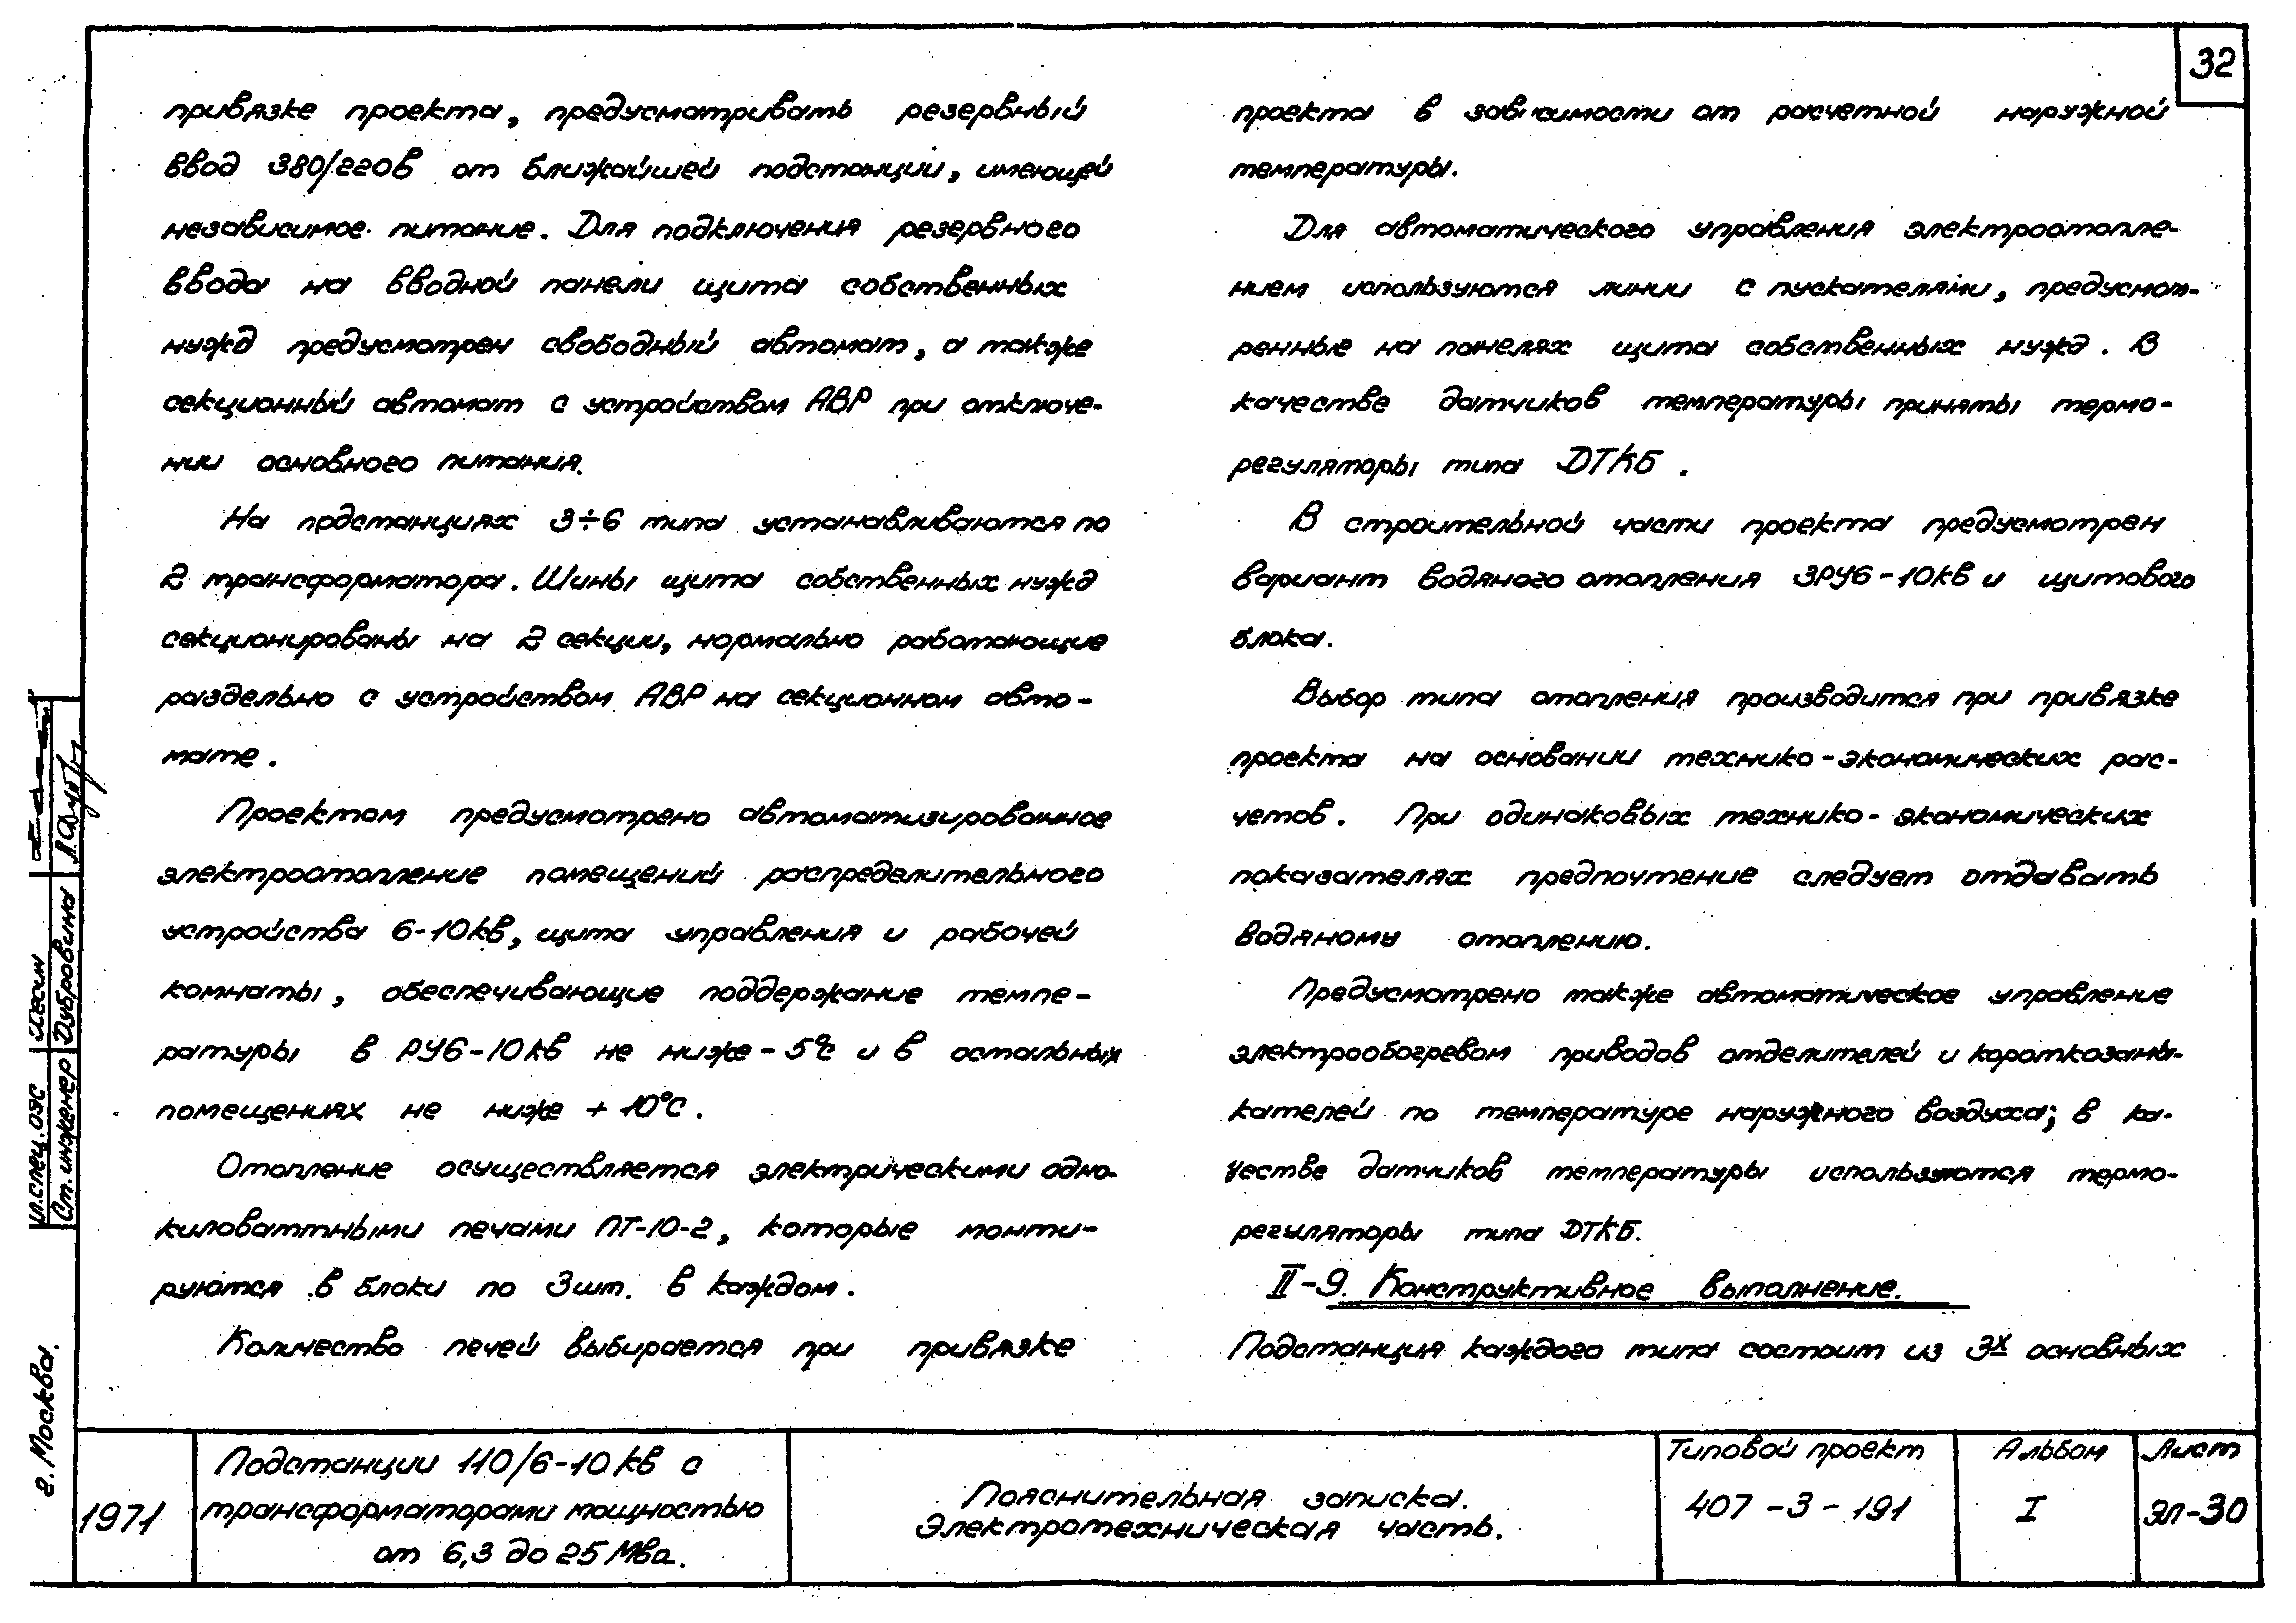 32
привязке проекта, предусматривать резервный
ввод 380/220в от ближайшей подстанции, имеющей
независимое питание. Для подключения резервного
ввода на вводной панели щита собственных
нужд предусмотрен свободный автомат, а также
секционный автомат с устройством АВР при отключе-
нии основного питания.
На подстанциях 3÷6 типа устанавливаются по
2 трансформатора. Шины щита собственных нужд
секционированы на 2 секции, нормально работающие
раздельно с устройством АВР на секционном авто-
мате.
Проектом предусмотрено автоматизированное
электроотопление помещений распределительного
устройства 6-10кв, щита управления и рабочей
комнаты, обеспечивающие поддержание темпе-
ратуры в РУ6-10кв не ниже -5°с и в остальных
помещениях не ниже +10°с.
Отопление осуществляется электрическими одно-
киловаттными печами ПТ-10-2, которые монти-
руются в блоки по 3шт. в каждом.
Количество печей выбирается при привязке
проекта в зависимости от расчетной наружной
температуры.
Для автоматического управления электроотопле-
нием используются линии с пускателями, предусмот-
ренные на панелях щита собственных нужд. В
качестве датчиков температуры приняты термо-
регуляторы типа ДТКБ.
В строительной части проекта предусмотрен
вариант водяного отопления ЗРУ6-10кв и щитового
блока.
Выбор типа отопления производится при привязке
проекта на основании технико-экономических рас-
четов. При одинаковых технико-экономических
показателях предпочтение следует отдавать
водяному отоплению.
Предусмотрено также автоматическое управление
электрообогревом приводов отделителей и короткозамы-
кателей по температуре наружного воздуха; в ка-
честве датчиков температуры используются термо-
регуляторы типа ДТКБ.
II-9. Конструктивное выполнение.
Подстанция каждого типа состоит из 3х основных
Гл.спец.ОЭС Хесин
Ст.инженер Дубровина
г. Москва.
1971
Подстанции 110/6-10кв с
трансформаторами мощностью
от 6,3 до 25 Мва.
Пояснительная записка.
Электротехническая часть.
Типовой проект
407-3-191
Альбом
I
Лист
ЭЛ-30